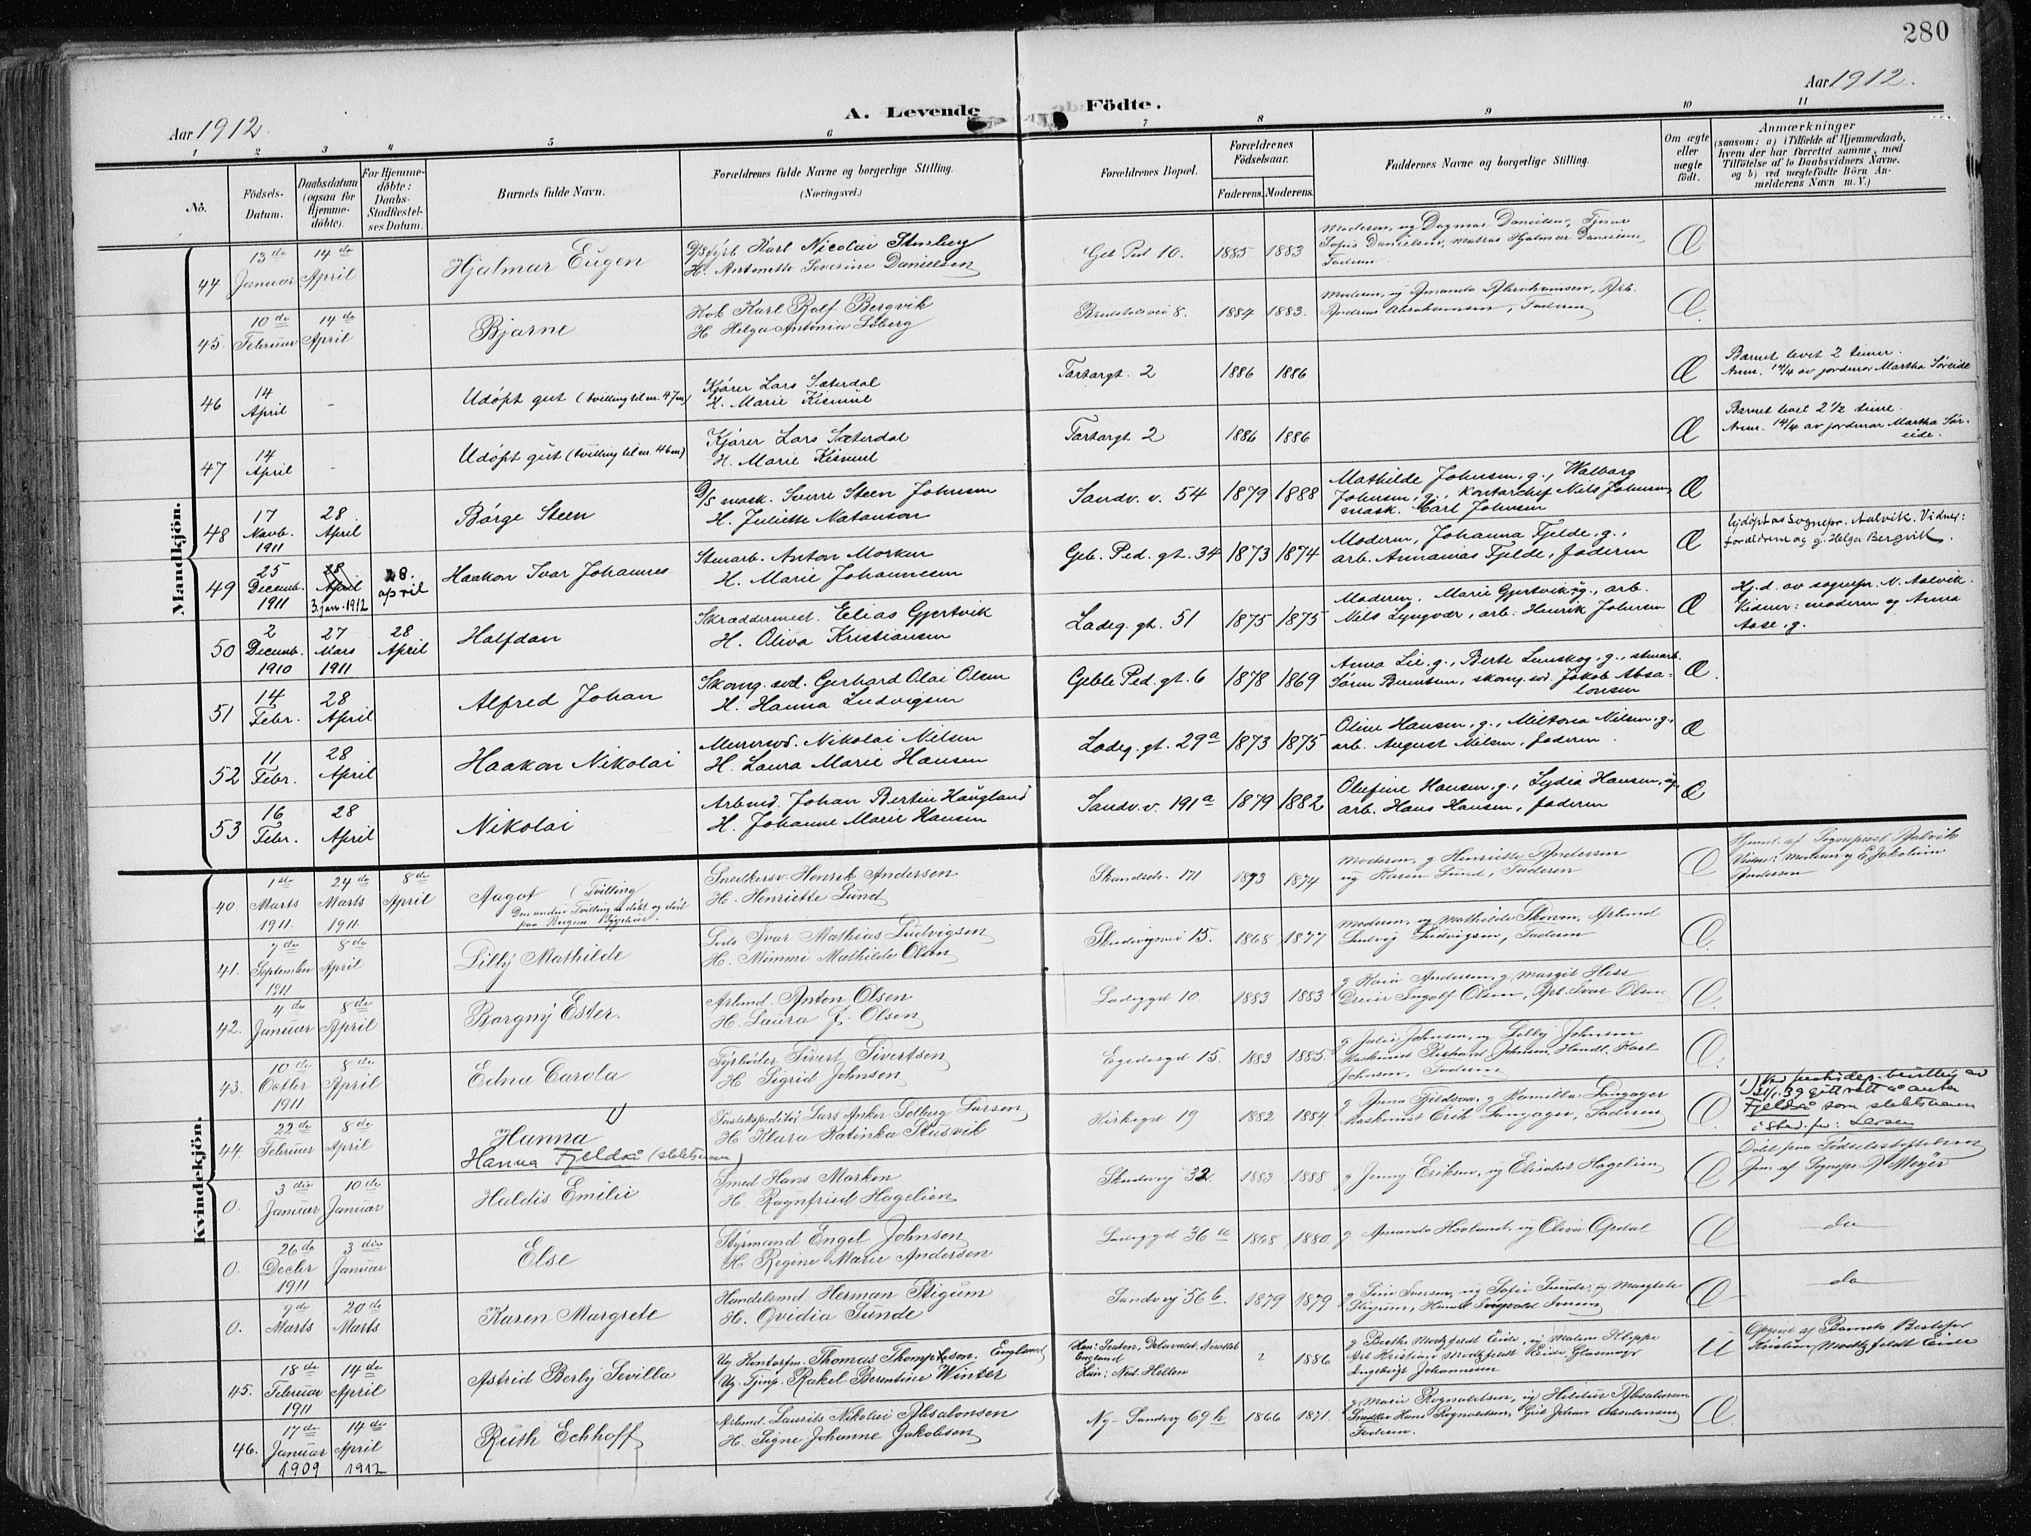 280
Aar 1912.
A. Levende Födte.
Aar 1912.
1 2 3 4 5 6 7 8 9 10 11
No.
Födsels-Datum.
Daabsdatum (ogsaa for Hjemme-døbte).
For Hjemme-døbte: Daabs-Stadfæstel-ses Datum.
Barnets fulde Navn.
Forældrenes fulde Navne og borgerlige Stilling.
(Næringsvei.)
Forældrenes Bopæl.
Forældrenes Födselsaar.
Faderens. Moderens.
Faddernes Navne og borgerlige Stilling.
Om ægte eller uægte födt.
Anmærkninger
(saasom: a) i Tilfælde af Hjemmedaab, hvem der har forrettet samme, med Tilföielse af to Daabsvidners Navne. og b) ved uægtefödte Börn An-melderens Navn m. V.)
Mandkjön.
44 13de Januar 14de April Hjalmar Eugen
Karl Nicolai Stenberg
H. Antonette Severine Danielsen
Geb Ped 10. 1885 1883
Moderen, og Dagmar Danielsen,
Sofie Danielsen, Matros Hjalmar Danielsen,
Faderen. Æ
45. 10de Februar 14de April Bjarne
Kok Karl Rolf Bergvik
H Helga Antonia Soberg
8. 1884 1883.
Moderen, og Amanda Abrahamsen, Arb.
Andreas Abrahamsen, Faderen Æ
46 14 April - Udöpt gut (tvilling til nr. 47 m)
Kjörer Lars Sæterdal
H. Marie Kismul
Tartargt. 2 1886 1886 Æ
Barnet levet 2 timer.
Anm. 14/4 av jordmor Martha Söreide
47 14 April Udöpt gut (tvilling til nr. 46 m)
Kjörer Lars Sæterdal
H. Marie Kismul
Tartargt 2 1886 1886 Æ
Barnet levet 2 1/2 time.
Anm. 14/4 av jordmor Martha Sör-
eide.
48 17 Novb. 1911 28 April Börge Steen
D/S mask. Sverre Steen Johnsen
H. Juliette Natanson
Sandv. v. 54 1879 1888
Mathilde Johnsen, g., Walborg
Johnsen, g., kontorchef Nils Johnsen,
mask. Carl Johnsen Æ
49 25 Decemb. 1911 28 April 3. jan. 1912 28. april Haakon Ivar Johannes
Stenarb. Anton Morken
H. Marie Johannesen
Geb. Ped. gt. 34 1873 1874
Moderen, Johanna Fjelde, g.,
arb. Annanias Fjelde, faderen Æ
Hjdöpt av Sognepr. Aalvik. Vidner:
forældrene og g. Helga Bergvik.
50 2 Decemb. 1910 27 Mars 1911 28 April Halfdan
Skræddermest. Elias Gjertvik
H. Oliva Kristiansen
Ladeg. gt. 51 1875 1875
Moderen, Marie Gjertvik, g., arb.
Nils Lyngvær, arb. Henrik Johnsen Æ
Hj. d. av sognepr. N. Aalvik.
Vidner: moderen og Anna
Aase, g.
51 14 Febr. 28 April Alfred Johan
Skomg. svd. Gerhard Olai Olsen
H. Hanna Ludvigsen
Geble Ped. gt. 6 1878 1869
Anna Lie, g., Berte Lunskog, g., stenarb.
Sören Berntsen, skomg. svd. Jakob Absa-
lonsen Æ.
52 11 Febr. 28 April Haakon Nikolai
Murersvd. Nikolai Nilsen
H. Laura Marie Hansen
Ladeg. gt. 29a 1873 1875
Oline Hansen, g., Miltona Nilsen, g.,
arb. August Nilsen, faderen. Æ
53 16 Febr. 28 April Nikolai
Arbmd. Johan Bertin Haugland
H. Johanne Marie Hansen
Sandv. v. 191a 1879 1882
Olufine Hansen, g., Lydia Hansen, ug.
arb. Hans Hansen, faderen Æ
Kvindekjön.
40 1ste Marts 1911 24de Marts 1911. 8de April Aagot (Tvilling
Den anden Tvilling er döbt og död
paa Bergens Sygehus.
Snedkersv. Henrik Andersen
H. Henriette Lund
171 1873 1874
Moderen, g Henriette Andersen
ug Karen Lund, Faderen Æ
Hjmd. af Sogneprest Aalvik
Vidner: Moderen og E. Jakobine
Andersen
41. 7de September 1911 8de April Lilly Mathilde
Lods Ivar Mathias Ludvigsen
H. Mimmi Mathilde Olsen
Skudevigsvei 15. 1868 1877
Moderen, ug Mathilde Skorven, Arbmd
Ludvig Ludvigsen, Faderen Æ.
42. 4de Januar 8de April Borgny Ester.
Arbmd. Anton Olsen
H. Laura J. Olsen
Ladeggd 10. 1883 1883
g Kaia Andersen, g Margit Hess
Dreier Ingolf Olsen, Arb. Ivar Olsen Æ.
43. 10de Octbr 1911 8de April Edna Carola
Fyrböder Sivert Sivertsen
H Sigrid Johnsen
Egedesgd 15. 1883 1885
g Julie Johnsen, ug Lilly Johnsen
Maskinist Richard Johnsen, Handl. Karl
Johnsen, Faderen Æ.
44. 22de Februar 8de April Hanna
Hanna Fjeldså (slektsnavn)
Lars Anker Solberg Larsen
H Klara Katinka Stusvik
Kirkegd 19 1882 1884
g Anna Fjeldsaa, g Kamilla Langager
Maskinist Erik Langager, Faderen Æ
Fjeldså som slektsnavn
i sted. for: Larsen
0. 3die Januar 10de Januar Haldis Emilie
Smed Hans Marken
H. Ragnfried Hagelien
Skudevig 32. 1883 1888
g Jenny Eriksen, ug Elisabet Hagelien Æ
Döbt paa Födselsstiftelsen
af Sognepr. J. Meyer
0. 26de Decbr 1911 3die Januar Else
Styrmand Engel Johnsen
H Regine Marie Andersen
Ladeggd 36a 1868 1880
g Amanda Hovland, ug Olivia Opdal Æ
do
0. 9de Marts 20de Marts Karen Margrete
Handelsmd Herman Stigum
H. Ovidia Sunde
Sandvig 56 b. 1879 1879
g Sina Iversen, ug Sofie Sunde, ug Margrete
Stigum, Handl. Ingvald Iversen Æ
do
45. 18de Februar 1911 14de April Astrid Berly Sevilla
Ug Kontorfm. Thomas Thompson England
Ug. Tjnp. Rakel Berentine Winter
Han: Seaton, Delavald,
England
Hun: Nst. Hellen
? 1886
g Berthe Mortzfeldt Eide, ug Malene Klippe
Arb Kristian Mortzfeldt Eide, Glasmager
Ingebrigt Johannesen U
Opgivet af Barnets Bestefar
Kristian Mortzfeldt Eide
46. 17de Januar 1909 14de April 1912 Ruth Echhoff
Arbmd. Laurits Nikolai Absalonsen
H. Signe Johanne Jakobsen
Ny-Sandvig 69 h 1866 1871.
g Marie Rognaldsen, ug Hildur Absalonsen
Snedker Hans Rognaldsen, Johan Absalonsen
Faderen. Æ.